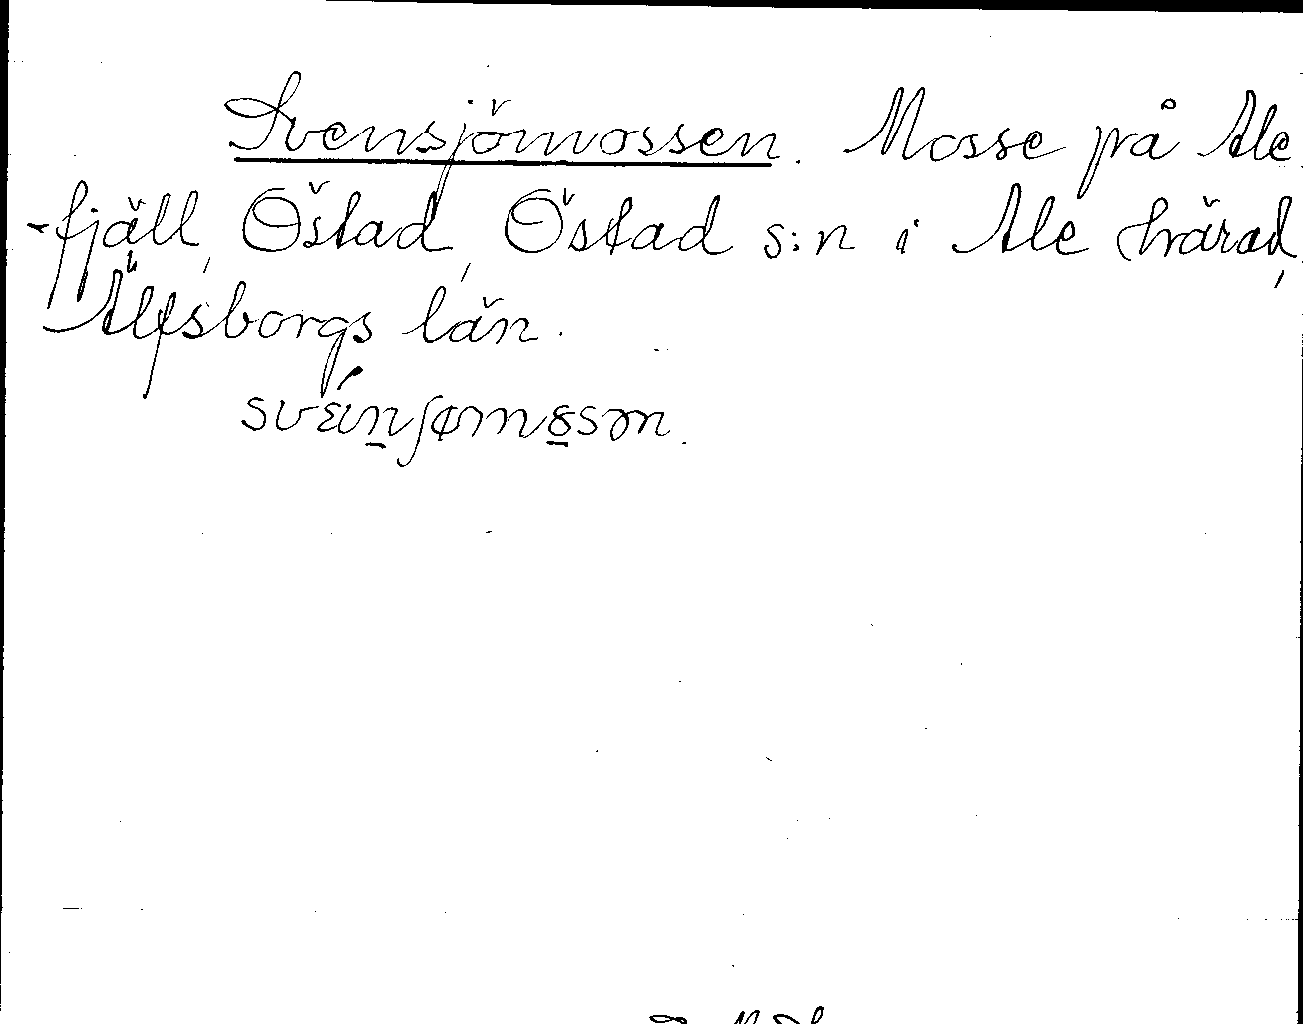 Svensjömossen. Mosse på Ale
-fjäll, Östad, Östad s:n i Ale härad,
Älfsborgs län.
svéinʃømo̱sən.